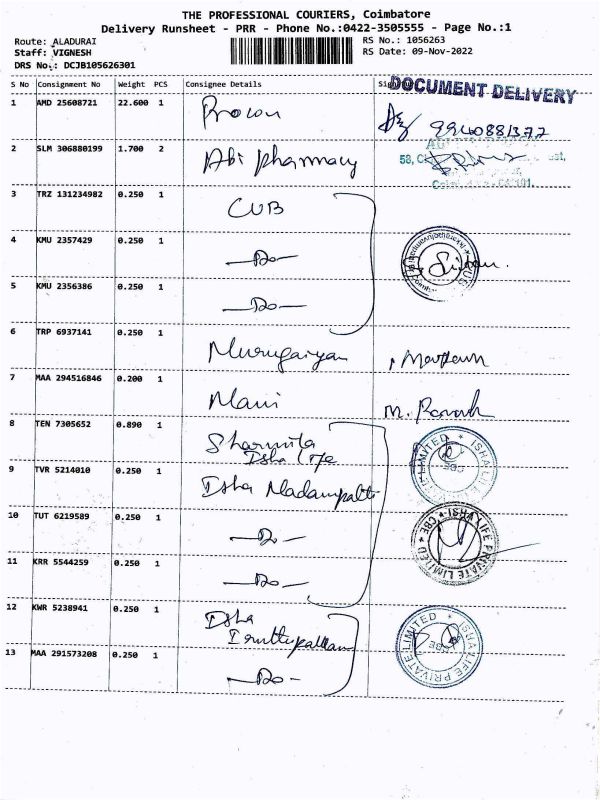 THE PROFESSIONAL COURIERS, Coimbatore
Delivery Runsheet - PRR - Phone No.:0422-3505555 - Page No.:1
Route: ALADURAI RS No.: 1056263
Staff: VIGNESH RS Date: 09-Nov-2022
DRS No.: DCJB105626301
S No Consignment No Weight PCS Consignee Details
DOCUMENT DELIVERY
1 AMD 25608721 22.600 1
2 SLM 306880199 1.700 2 Abi pharmacy
58,
3 TRZ 131234982 0.250 1 CUB
4 KMU 2357429 0.250 1 -Do-
5 KMU 2356386 0.250 1 -Do-
6 TRP 6937141 0.250 1 Murugaiyan
7 MAA 294516846 0.200 1 Mani M.
8 TEN 7305652 0.890 1 Sharmila
Isha Life
ISHA LIFE PRIVATE LIMITED CBE
9 TVR 5214010 0.250 1 Isha Madampatti
10 TUT 6219589 0.250 1 -Do-
ISHA LIFE PRIVATE LIMITED CBE
11 KRR 5544259 0.250 1 -Do-
12 KWR 5238941 0.250 1 Isha
Iruttupallam
ISHA LIFE PRIVATE LIMITED CBE
13 MAA 291573208 0.250 1 -Do-